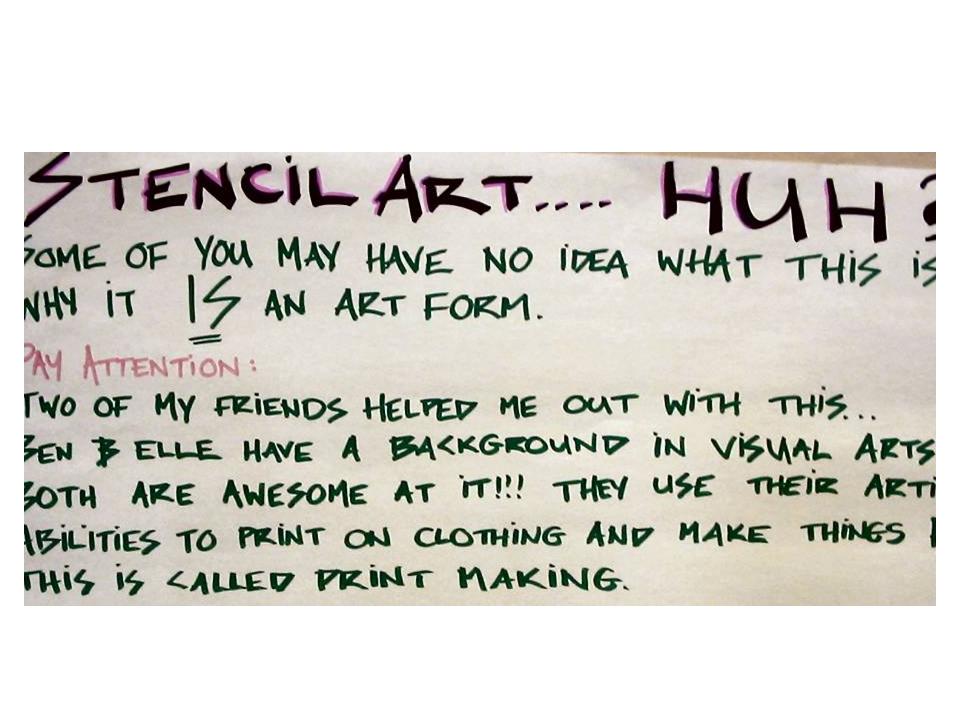 STENCIL ART.... HUH?
SOME OF YOU MAY HAVE NO IDEA WHAT THIS IS
WHY IT IS AN ART FORM.
PAY ATTENTION:
TWO OF MY FRIENDS HELPED ME OUT WITH THIS...
BEN & ELLE HAVE A BACKGROUND IN VISUAL ARTS
BOTH ARE AWESOME AT IT!!! THEY USE THEIR ARTI
ABILITIES TO PRINT ON CLOTHING AND MAKE THINGS
THIS IS CALLED PRINT MAKING.